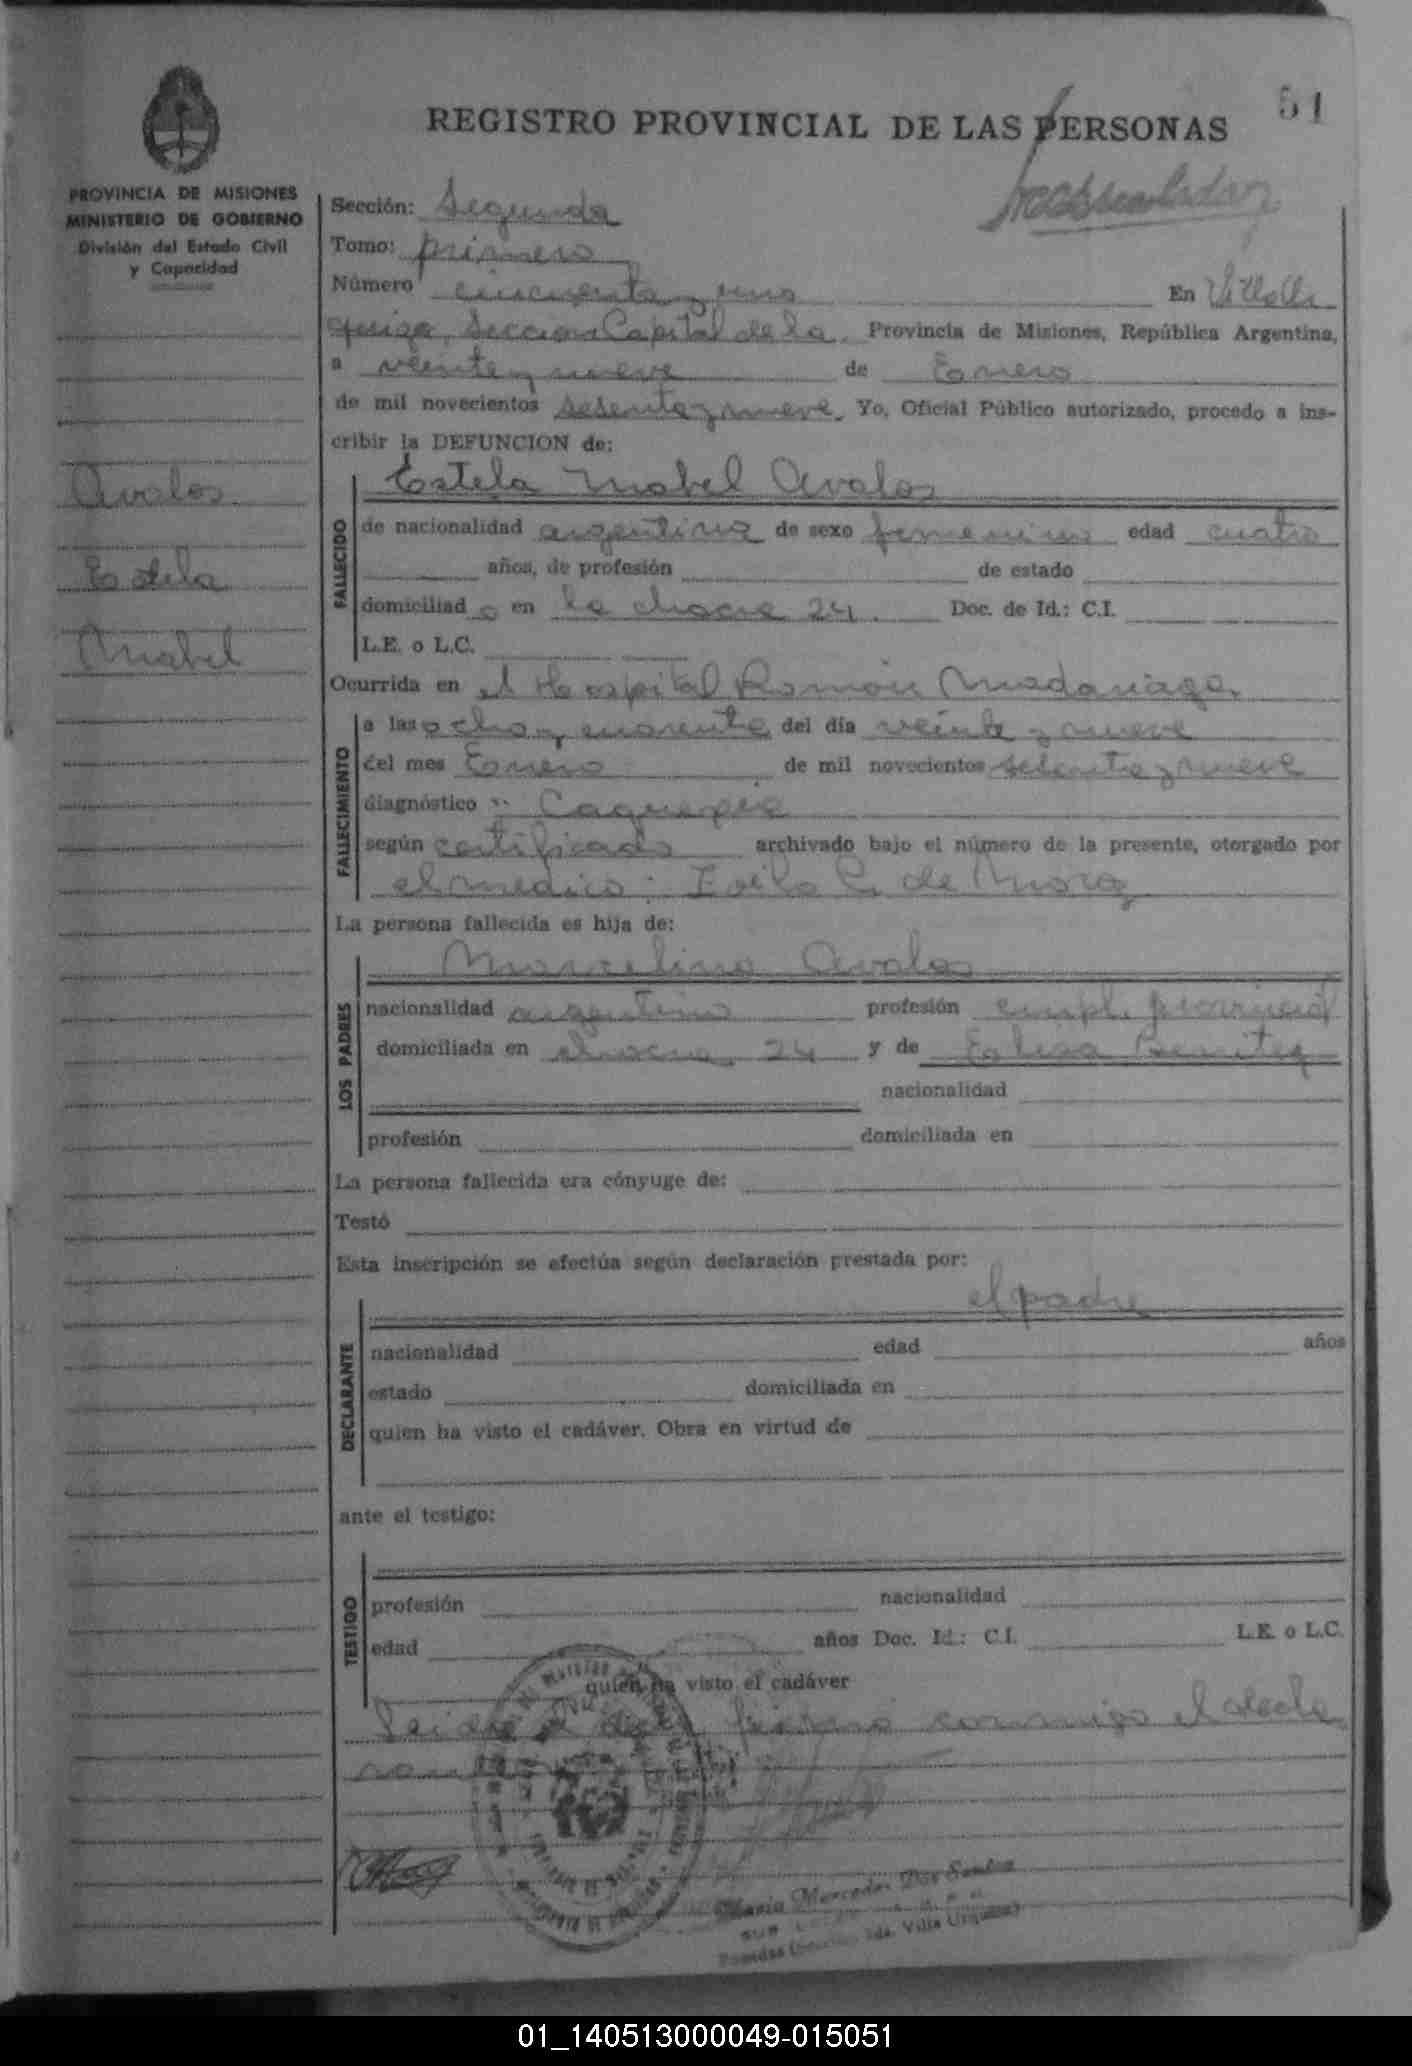 51
REGISTRO PROVINCIAL DE LAS PERSONAS
PROVINCIA DE MISIONES
MINISTERIO DE GOBIERNO
División del Estado Civil
y Capacidad
Sección: Segunda
Tomo: primero
Número cincuenta y uno En Villa Ur
quiza, Seccion Capital de la, Provincia de Misiones, República Argentina,
a veinte y nueve de Enero
de mil novecientos sesenta y nueve, Yo, Oficial Público autorizado, procedo a ins-
cribir la DEFUNCION de:
Avalos
Estela
Mabel
FALLECIDO
Estela Mabel Avalos
de nacionalidad argentina de sexo femenino edad cuatro
años, de profesión de estado
domiciliad o en la chacra 24. Doc. de Id.: C.I.
L.E. o L.C.
Ocurrida en el Hospital Ramón Madariaga,
FALLECIMIENTO
a las ocho y cuarenta del día veinte y nueve
del mes Enero de mil novecientos sesenta y nueve
diagnóstico Caquexia
según certificado archivado bajo el número de la presente, otorgado por
el medico: Zoila C. de Mora
La persona fallecida es hija de:
LOS PADRES
Marcelino Avalos
nacionalidad argentino profesión empl. provincial
domiciliada en chacra 24 y de Elisa Benitez
nacionalidad
profesión domiciliada en
La persona fallecida era cónyuge de:
Testó
Esta inscripción se efectúa según declaración prestada por:
el padre
DECLARANTE
nacionalidad edad años
estado domiciliada en
quien ha visto el cadáver. Obra en virtud de
ante el testigo:
TESTIGO
profesión nacionalidad
edad años Doc. Id.: C.I. L.E. o L.C.
quien ha visto el cadáver
Leida el acta, firma conmigo el decla
rante
Maria Mercedes Dos Santos
Posadas Villa Urquiza)
01_140513000049-015051